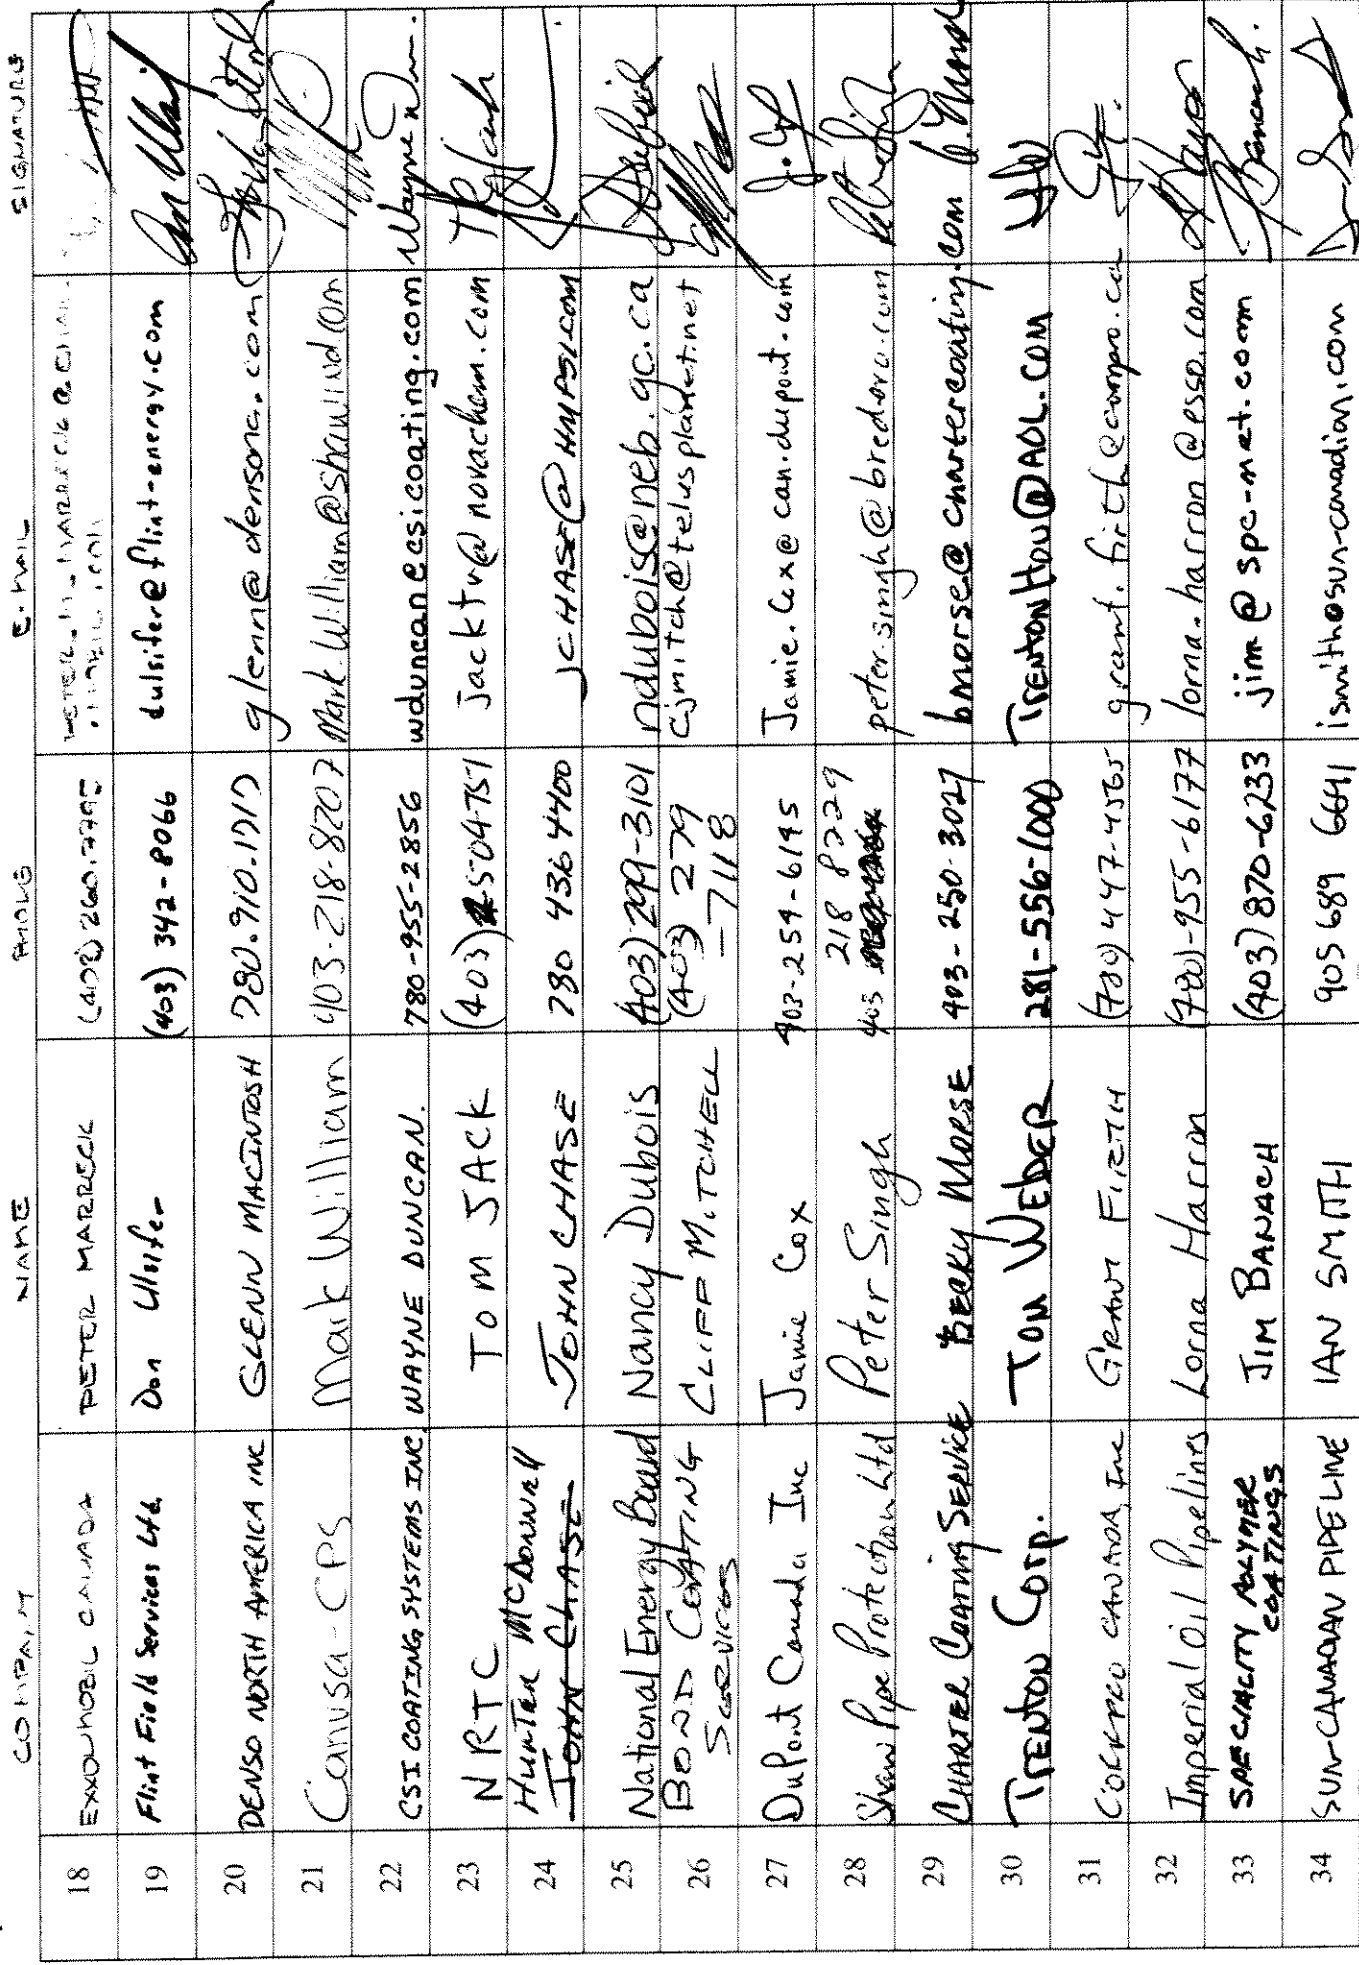 COMPANY NAME PHONE E-MAIL SIGNATURE
18 EXXONMOBIL CANADA PETER MARRECK (403) 260.7795
19 Flint Field Services Ltd. Don Ulsifer (403) 342-8066 dulsifer@flint-energy.com
20 DENSO NORTH AMERICA INC GLENN MACINTOSH 780.910.1717 glenn@densona.com
21 Canusa-CPS Mark William 403-218-8207 Mark.William@shawind.com
22 CSI COATING SYSTEMS INC. WAYNE DUNCAN. 780-955-2856 wduncan@csicoating.com
23 NRTC TOM JACK (403) jacktr@novachem.com
24 HUNTER MCDONNELL JOHN CHASE 780 436 4400 JCHASE@HMPSI.com
JOHN CHASE
25 National Energy Board Nancy Dubois (403) 299-3101 ndubois@neb.gc.ca
26 BOND COATING SERVICES CLIFF MITCHELL (403) 279-7118 cjmitch@telusplanet.net
27 DuPont Canada Inc Jamie Cox 403-254-6195 Jamie.Cox@can.dupont.com
28 Shaw Pipe Protection Ltd Peter Singh 403 218 8229 peter.singh@bredero.com
29 CHARTER COATING SERVICE BECKY MORSE 403-250-3027 bmorse@chartercoating.com
30 TRENTON CORP. TOM WEBER 281-556-1000 TRENTONHOU@AOL.COM
31 CORRPRO CANADA, INC GRANT FIRTH (780) 447-4565 grant.firth@corrpro.ca
32 Imperial Oil Pipelines Lorna Harron (780)-955-6177 lorna.harron@esso.com
33 SPECIALTY POLYMER COATINGS JIM BANACH (403) 870-6233 jim@spc-net.com
34 SUN-CANADIAN PIPELINE IAN SMITH 905 689 6641 ismith@sun-canadian.com